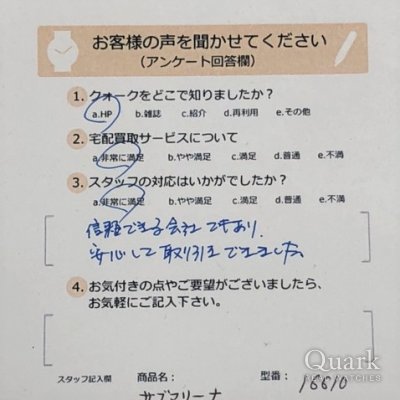 お客様の声を聞かせてください
(アンケート回答欄)
1. クォークをどこで知りましたか?
a.HP b.雑誌 c.紹介 d.再利用 e.その他
2. 宅配買取サービスについて
a.非常に満足 b.やや満足 c.満足 d.普通 e.不満
3. スタッフの対応はいかがでしたか?
a.非常に満足 b.やや満足 c.満足 d.普通 e.不満
信頼できる会社でもあり、
安心して取引きできました。
4. お気付きの点やご要望がございましたら、
お気軽にご記入下さい。
Quark
スタッフ記入欄 商品名: 型番: 16610
サブマリーナ